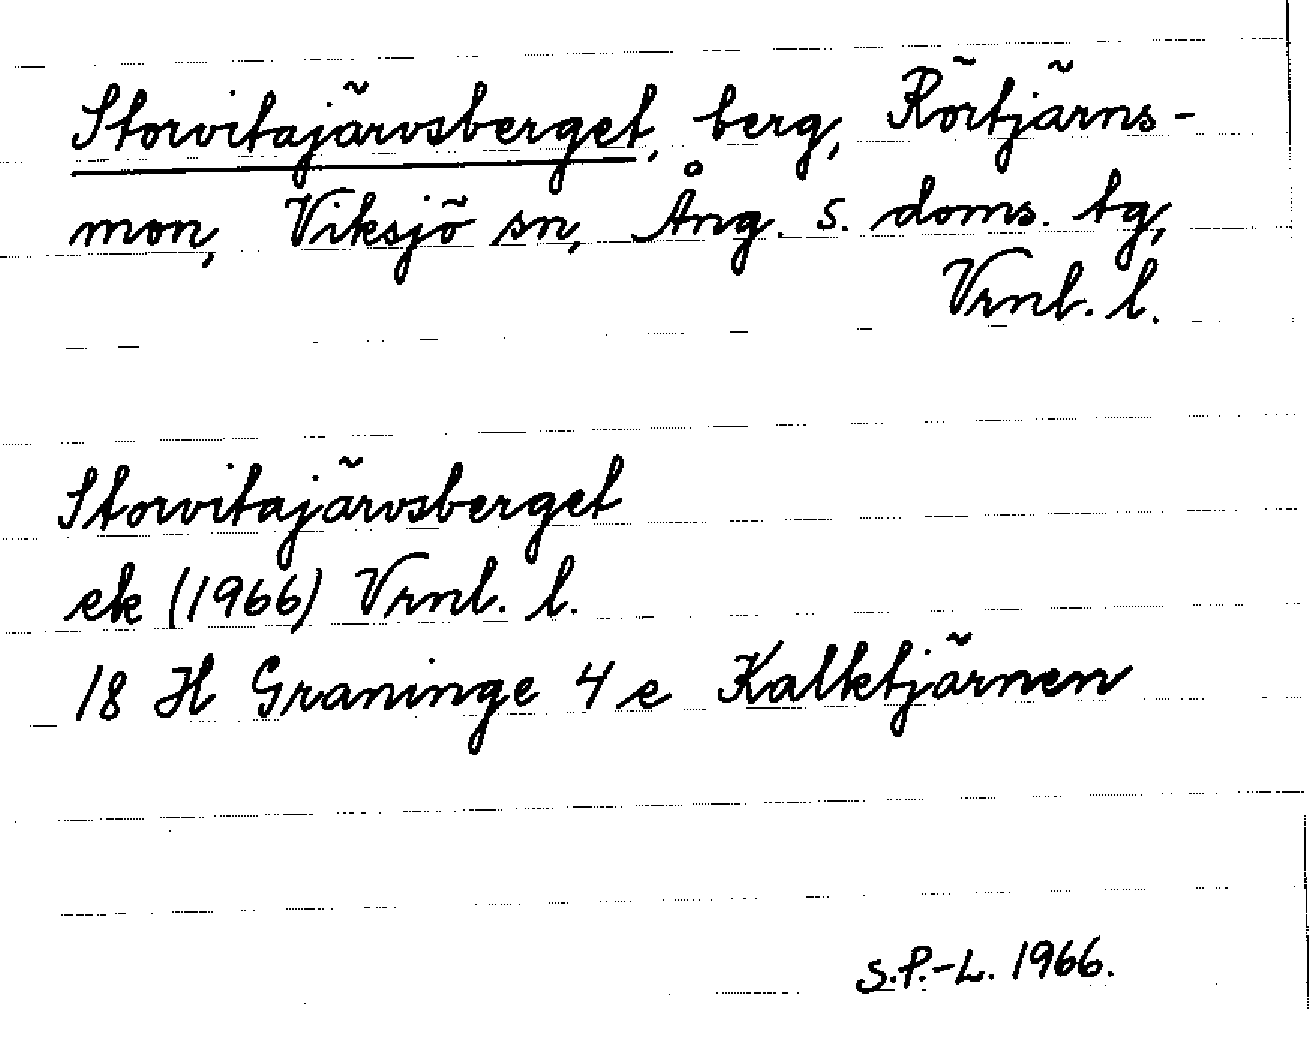 Storvitajärvsberget, berg, Rörtjärns-
mon, Viksjö sn, Ång. s. doms. tg,
Vrnl. l.
Storvitajärvsberget
ek (1966) Vrnl. l.
18 H Graninge 4 e Kalktjärnen
S.P.-L. 1966.